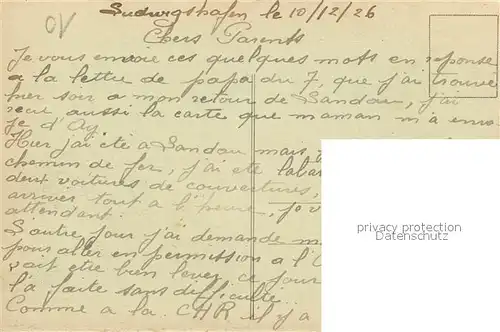 CV
Ludwigshafen le 10/12/26
Chers Parents
Je vous envoie ces quelques mots en reponse
a la lettre de papa du 7, que j'ai trouvé
hier soir a mon retour de Landau, j'ai
recu aussi la carte que maman m'a envo-
yé d'Ay.
Hier j'ai été a Landau mais
chemin de fer, j'ai été
deux voitures de couvertures,
arriver tout a l'heure, je
attendant.
L'autre jour j'ai demandé
pour aller en permission a l'
vait etre bien levé, ce jour
l'a faite sans difficulté.
Comme a la CHR il y a
privacy protection
Datenschutz